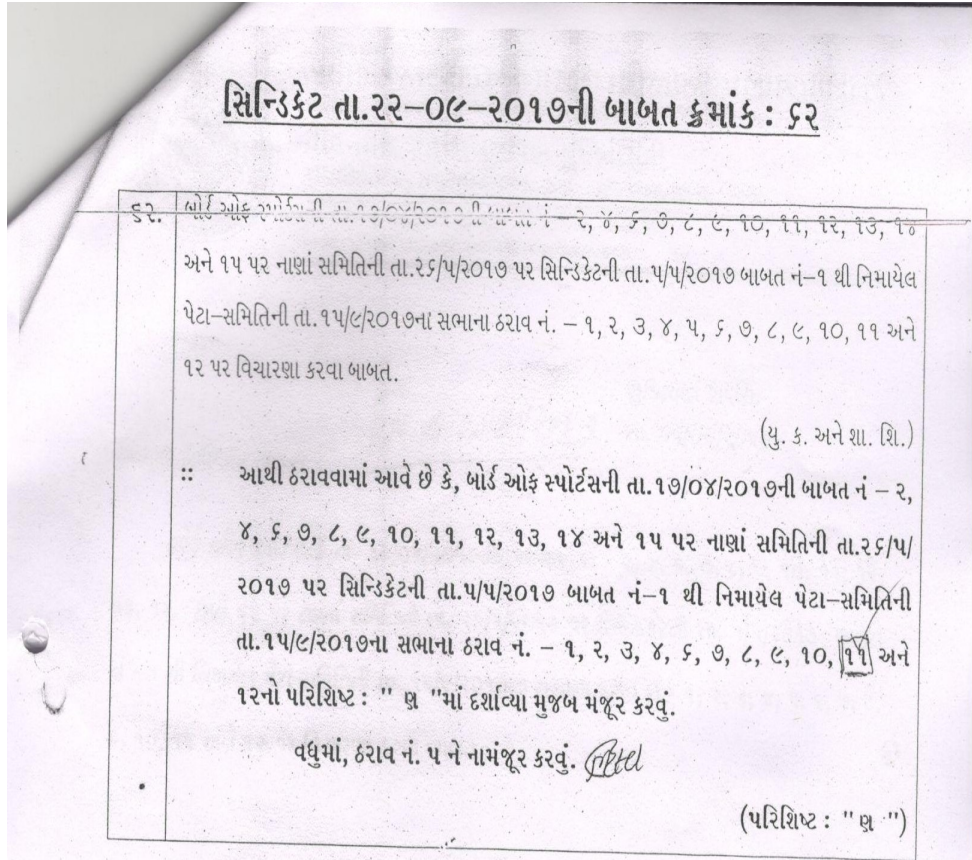 સિન્ડિકેટ તા.૨૨-૦૯-૨૦૧૭ની બાબત ક્રમાંક : ૬૨
૬૨. બોર્ડ ઓફ સ્પોર્ટસની તા.૧૭/૦૪/૨૦૧૭ની બાબત નં – ૨, ૪, ૬, ૭, ૮, ૯, ૧૦, ૧૧, ૧૨, ૧૩, ૧૪
અને ૧૫ પર નાણાં સમિતિની તા.૨૬/૫/૨૦૧૭ પર સિન્ડિકેટની તા.૫/૫/૨૦૧૭ બાબત નં-૧ થી નિમાયેલ
પેટા-સમિતિની તા.૧૫/૯/૨૦૧૭ના સભાના ઠરાવ નં. – ૧, ૨, ૩, ૪, ૫, ૬, ૭, ૮, ૯, ૧૦, ૧૧ અને
૧૨ પર વિચારણા કરવા બાબત.
(યુ. ક. અને શા. શિ.)
:: આથી ઠરાવવામાં આવે છે કે, બોર્ડ ઓફ સ્પોર્ટસની તા.૧૭/૦૪/૨૦૧૭ની બાબત નં – ૨,
૪, ૬, ૭, ૮, ૯, ૧૦, ૧૧, ૧૨, ૧૩, ૧૪ અને ૧૫ પર નાણાં સમિતિની તા.૨૬/૫/
૨૦૧૭ પર સિન્ડિકેટની તા.૫/૫/૨૦૧૭ બાબત નં-૧ થી નિમાયેલ પેટા-સમિતિની
તા.૧૫/૯/૨૦૧૭ના સભાના ઠરાવ નં. – ૧, ૨, ૩, ૪, ૬, ૭, ૮, ૯, ૧૦, ૧૧ અને
૧૨નો પરિશિષ્ટ : " ણ "માં દર્શાવ્યા મુજબ મંજૂર કરવું.
વધુમાં, ઠરાવ નં. ૫ ને નામંજૂર કરવું.
(પરિશિષ્ટ : " ણ ")